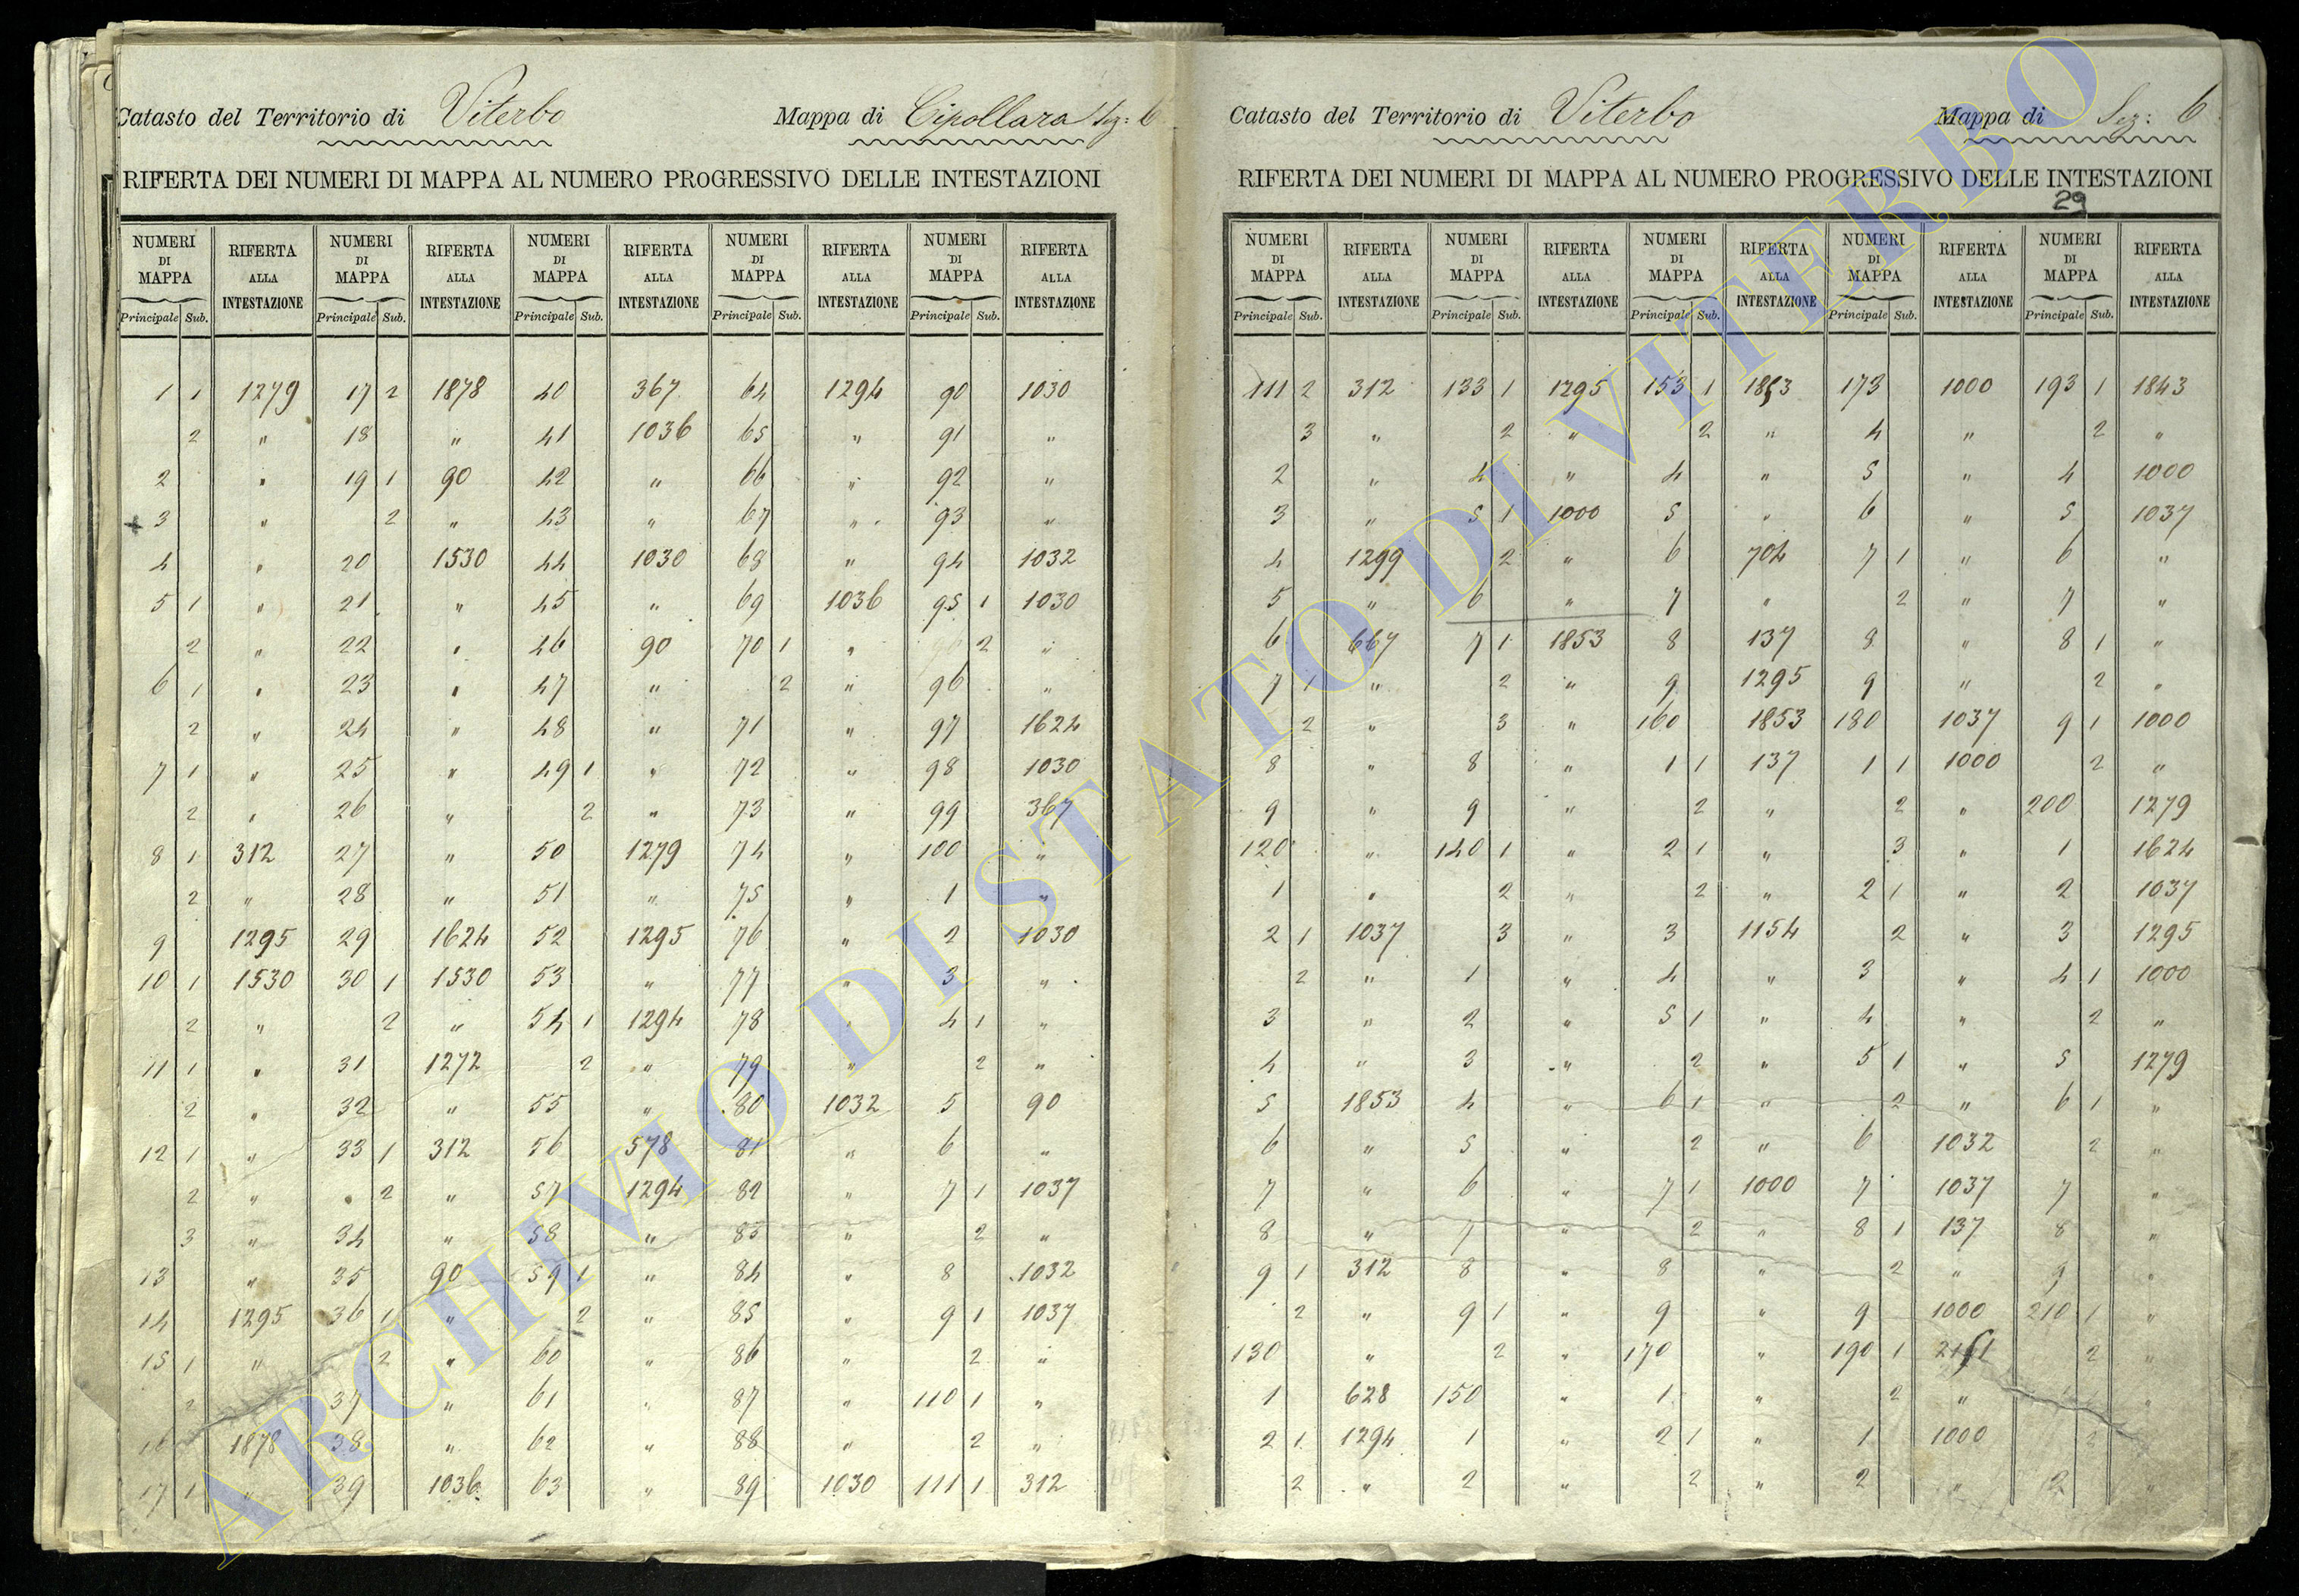 Catasto del Territorio di Viterbo Mappa di Cipollara Sez: 6
RIFERTA DEI NUMERI DI MAPPA AL NUMERO PROGRESSIVO DELLE INTESTAZIONI
NUMERI DI MAPPA RIFERTA ALLA INTESTAZIONE NUMERI DI MAPPA RIFERTA ALLA INTESTAZIONE NUMERI DI MAPPA RIFERTA ALLA INTESTAZIONE NUMERI DI MAPPA RIFERTA ALLA INTESTAZIONE NUMERI DI MAPPA RIFERTA ALLA INTESTAZIONE
Principale Sub. Principale Sub. Principale Sub. Principale Sub. Principale Sub.
1 1 1279 17 2 1878 40 367 64 1294 90 1030
2 " 18 " 41 1036 65 " 91 "
2 " 19 1 90 42 " 66 " 92 "
+ 3 " 2 " 43 " 67 " 93 "
4 " 20 1530 44 1030 68 " 94 1032
5 1 " 21 " 45 " 69 1036 95 1 1030
2 " 22 " 46 90 70 1 " 2 "
6 1 " 23 " 47 " 2 " 96 "
2 " 24 " 48 " 71 " 97 1624
7 1 " 25 " 49 1 " 72 " 98 1030
2 " 26 " 2 " 73 " 99 367
8 1 312 27 " 50 1279 74 " 100 "
2 " 28 " 51 " 75 " 1 "
9 1295 29 1624 52 1295 76 " 2 1030
10 1 1530 30 1 1530 53 " 77 " 3 "
2 " 2 " 54 1 1294 78 " 4 1 "
11 1 " 31 1272 2 " 79 " 2 "
2 " 32 " 55 " 80 1032 5 90
12 1 " 33 1 312 56 578 81 " 6 "
2 " 2 " 57 1294 82 " 7 1 1037
3 " 34 " 58 " 83 " 2 "
13 " 35 90 59 1 " 84 " 8 1032
14 1295 36 1 " 2 " 85 " 9 1 1037
15 1 " 2 " 60 " 86 " 2 "
2 37 " 61 " 87 " 110 1 "
16 1878 38 " 62 " 88 " 2 "
17 1 " 39 1036 63 " 89 1030 111 1 312
Catasto del Territorio di Viterbo Mappa di Sez: 6
RIFERTA DEI NUMERI DI MAPPA AL NUMERO PROGRESSIVO DELLE INTESTAZIONI
29
NUMERI DI MAPPA RIFERTA ALLA INTESTAZIONE NUMERI DI MAPPA RIFERTA ALLA INTESTAZIONE NUMERI DI MAPPA RIFERTA ALLA INTESTAZIONE NUMERI DI MAPPA RIFERTA ALLA INTESTAZIONE NUMERI DI MAPPA RIFERTA ALLA INTESTAZIONE
Principale Sub. Principale Sub. Principale Sub. Principale Sub. Principale Sub.
111 2 312 133 1 1295 153 1 1853 173 1000 193 1 1843
3 " 2 " 2 " 4 " 2 "
2 " 4 " 4 " 5 " 4 1000
3 " 5 1 1000 5 " 6 " 5 1037
4 1299 2 " 6 704 7 1 " 6 "
5 " 6 " 7 " 2 " 7 "
6 667 7 1 1853 8 137 8 " 8 1 "
7 1 " 2 " 9 1295 9 " 2 "
2 " 3 " 160 1853 180 1037 9 1 1000
8 " 8 " 1 1 137 1 1 1000 2 "
9 " 9 " 2 " 2 " 200 1279
120 " 140 1 " 2 1 " 3 " 1 1624
1 " 2 " 2 " 2 1 " 2 1037
2 1 1037 3 " 3 1154 2 " 3 1295
2 " 1 " 4 " 3 " 4 1 1000
3 " 2 " 5 1 " 4 " 2 "
4 " 3 " 2 " 5 1 " 5 1279
5 1853 4 " 6 1 " 2 " 6 1 "
6 " 5 " 2 " 6 1032 2 "
7 " 6 " 7 1 1000 7 1037 7 "
8 " 7 " 2 " 8 1 137 8 "
9 1 312 8 " 8 " 2 " 9 "
2 " 9 1 " 9 " 9 1000 210 1 "
130 " 2 " 170 " 190 1 2 "
1 628 150 " 1 " 2 " "
2 1 1294 1 " 2 1 " 1 1000 2
2 " 2 " 2 " 2 " 2 "
ARCHIVIO DI STATO DI VITERBO